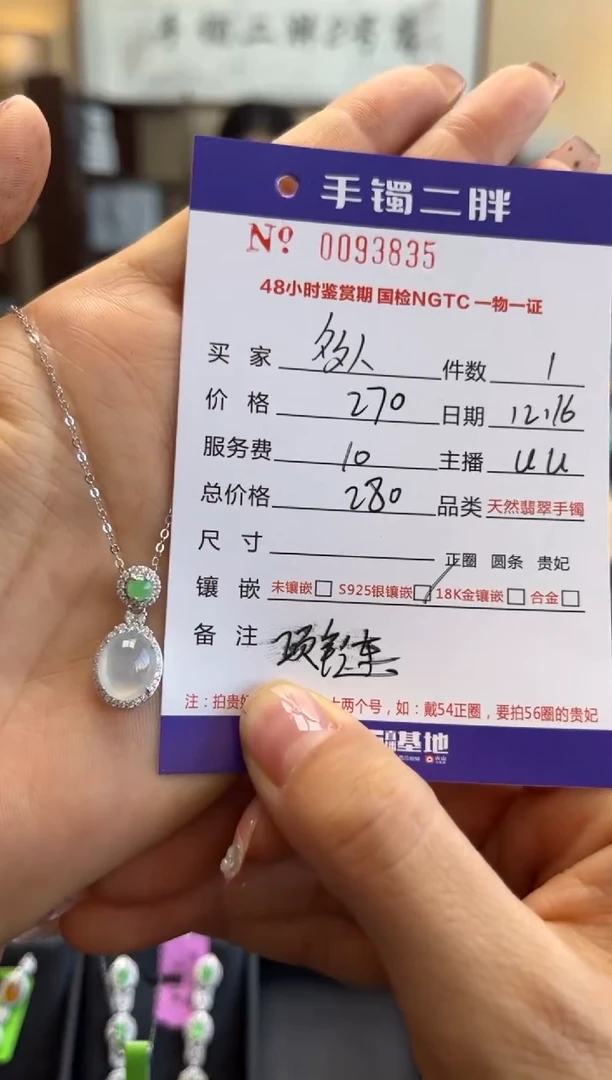 手镯二胖
Nº 0093835
48小时鉴赏期 国检NGTC 一物一证
买家 件数 1
价格 270 日期 12.16
服务费 10 主播 uu
总价格 280 品类 天然翡翠手镯
尺寸 正圈 圆条 贵妃
镶嵌 未镶嵌 S925银镶嵌 18K金镶嵌 合金
备注 项链
注：拍贵 大两个号，如：戴54正圈，要拍56圈的贵妃
基地